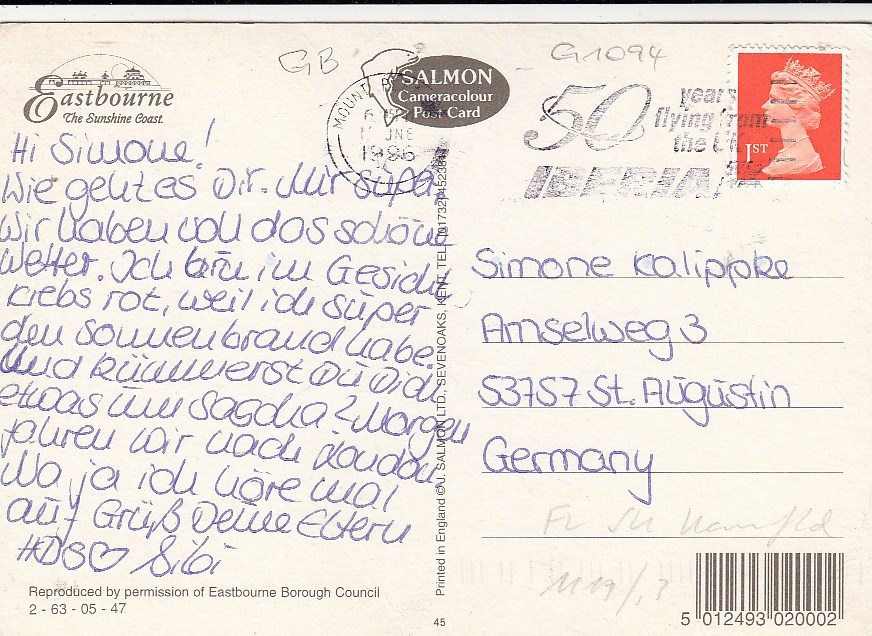 GB
G1094
Eastbourne
The Sunshine Coast.
SALMON
Cameracolour
Post Card
MOUN
JNE
1996
50 years
flying from
the UK
IBERIA
1ST
Hi Simone!
Wie geht es Dir. Mir super
Wir haben voll das schöne
Wetter. Ich bin im Gesicht
krebs rot, weil ich super
den Sonnenbrand habe.
Und kümmerst Du Dich
etwas um Sascha? Morgen
fahren wir nach London
Na ja ich höre mal
auf Grüß Deine Eltern
HDS♡ Sibi
Simone Kalippke
Amselweg 3
53757 St. Augustin
Germany
Printed in England © J. SALMON LTD., SEVENOAKS, KENT. TEL:
Reproduced by permission of Eastbourne Borough Council
2 - 63 - 05 - 47
45
5 012493 020002